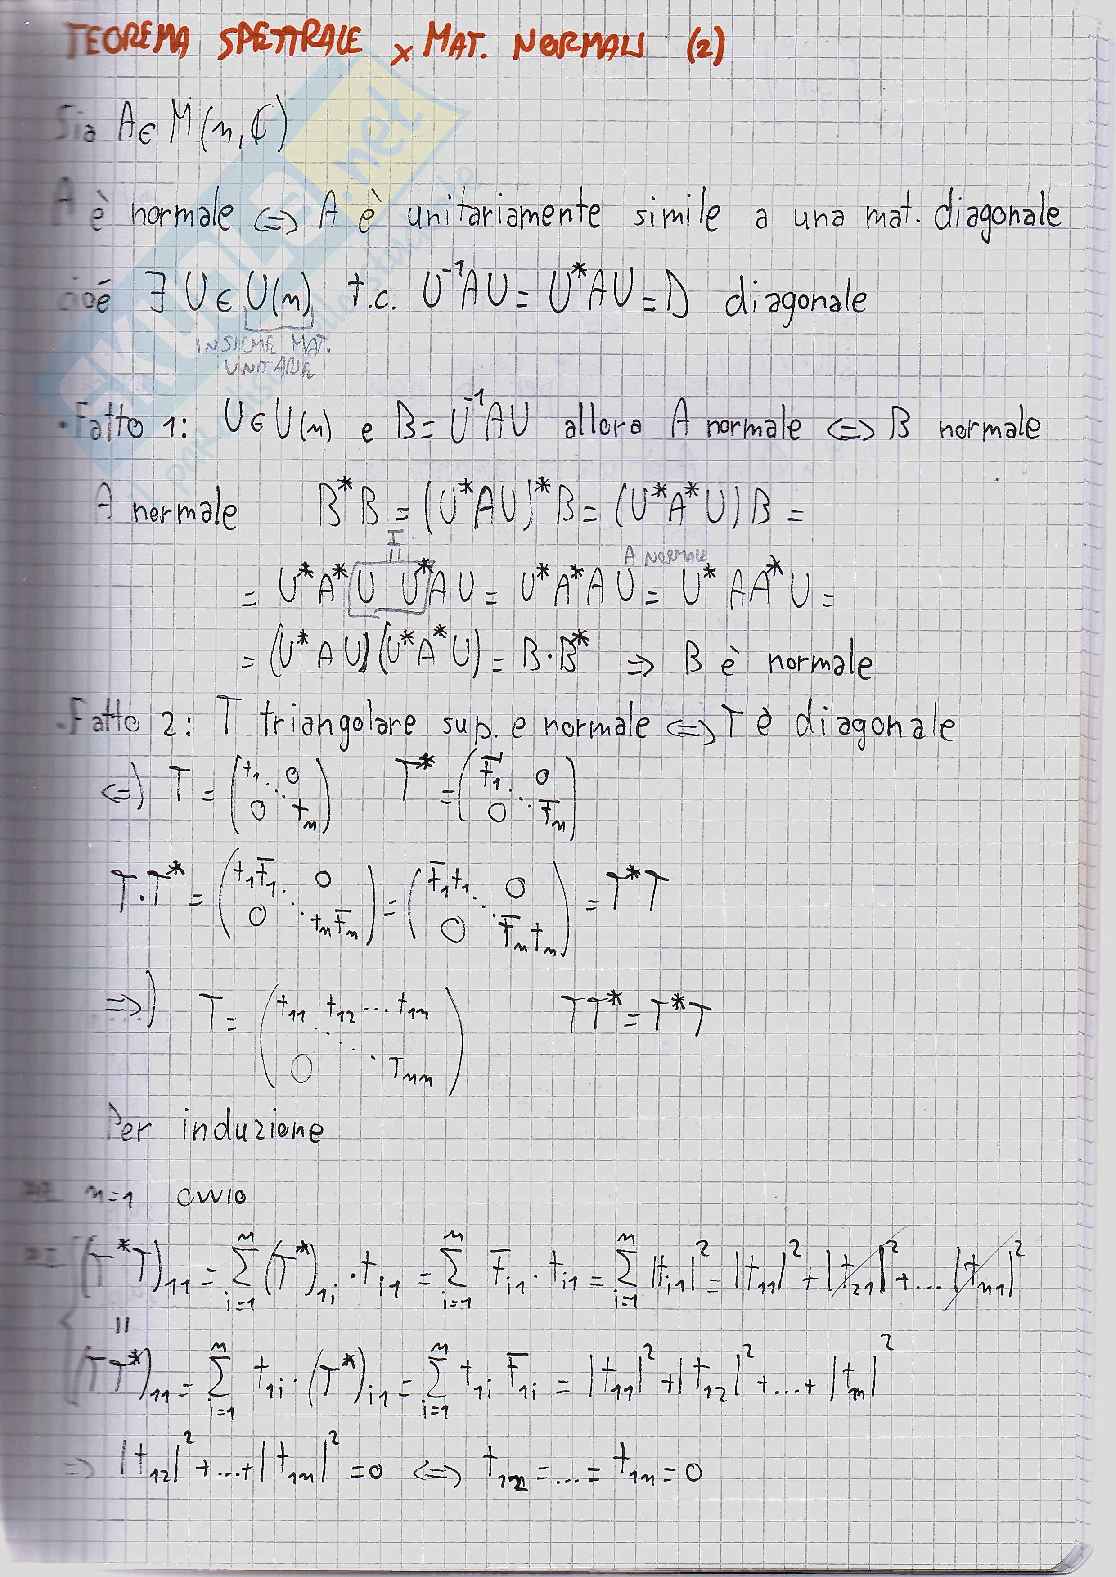 TEOREMA SPETTRALE x MAT. NORMALI (2)
Sia A ∈ M(n, ℂ)
A è normale ⇔ A è unitariamente simile a una mat. diagonale
cioè ∃ U ∈ U(n) t.c. U⁻¹AU = U*AU = D diagonale
INSIEME MAT.
UNITARIE
·Fatto 1: U ∈ U(n) e B = U⁻¹AU allora A normale ⇔ B normale
A normale B*B = (U*AU)*B = (U*A*U)B =
I
=
A NORMALE
= U*A*U U*AU = U*A*AU = U*AA*U =
= (U*AU)(U*A*U) = B·B* ⇒ B è normale
·Fatto 2: T triangolare sup. e normale ⇔ T è diagonale
⇐) T = (t₁ ⋱ 0 0 tₙ) T* = (t̄₁ ⋱ 0 0 t̄ₙ)
T·T* = (t₁t̄₁ ⋱ 0 0 tₙt̄ₙ) = (t̄₁t₁ ⋱ 0 0 t̄ₙtₙ) = T*T
⇒) T = (t₁₁ t₁₂ ... t₁ₙ ⋱ 0 tₙₙ) TT* = T*T
Per induzione
n=1 ovvio
(T*T)₁₁ = Σᵢ₌₁ⁿ (T*)₁ᵢ · tᵢ₁ = Σᵢ₌₁ⁿ t̄ᵢ₁ · tᵢ₁ = Σᵢ₌₁ⁿ |tᵢ₁|² = |t₁₁|² + |t₂₁|² + ... |tₙ₁|²
=
(TT*)₁₁ = Σᵢ₌₁ⁿ t₁ᵢ · (T*)ᵢ₁ = Σᵢ₌₁ⁿ t₁ᵢ t̄₁ᵢ = |t₁₁|² + |t₁₂|² + ... + |t₁ₙ|²
⇒ |t₁₂|² + ... + |t₁ₙ|² = 0 ⇔ t₁₂ = ... = t₁ₙ = 0